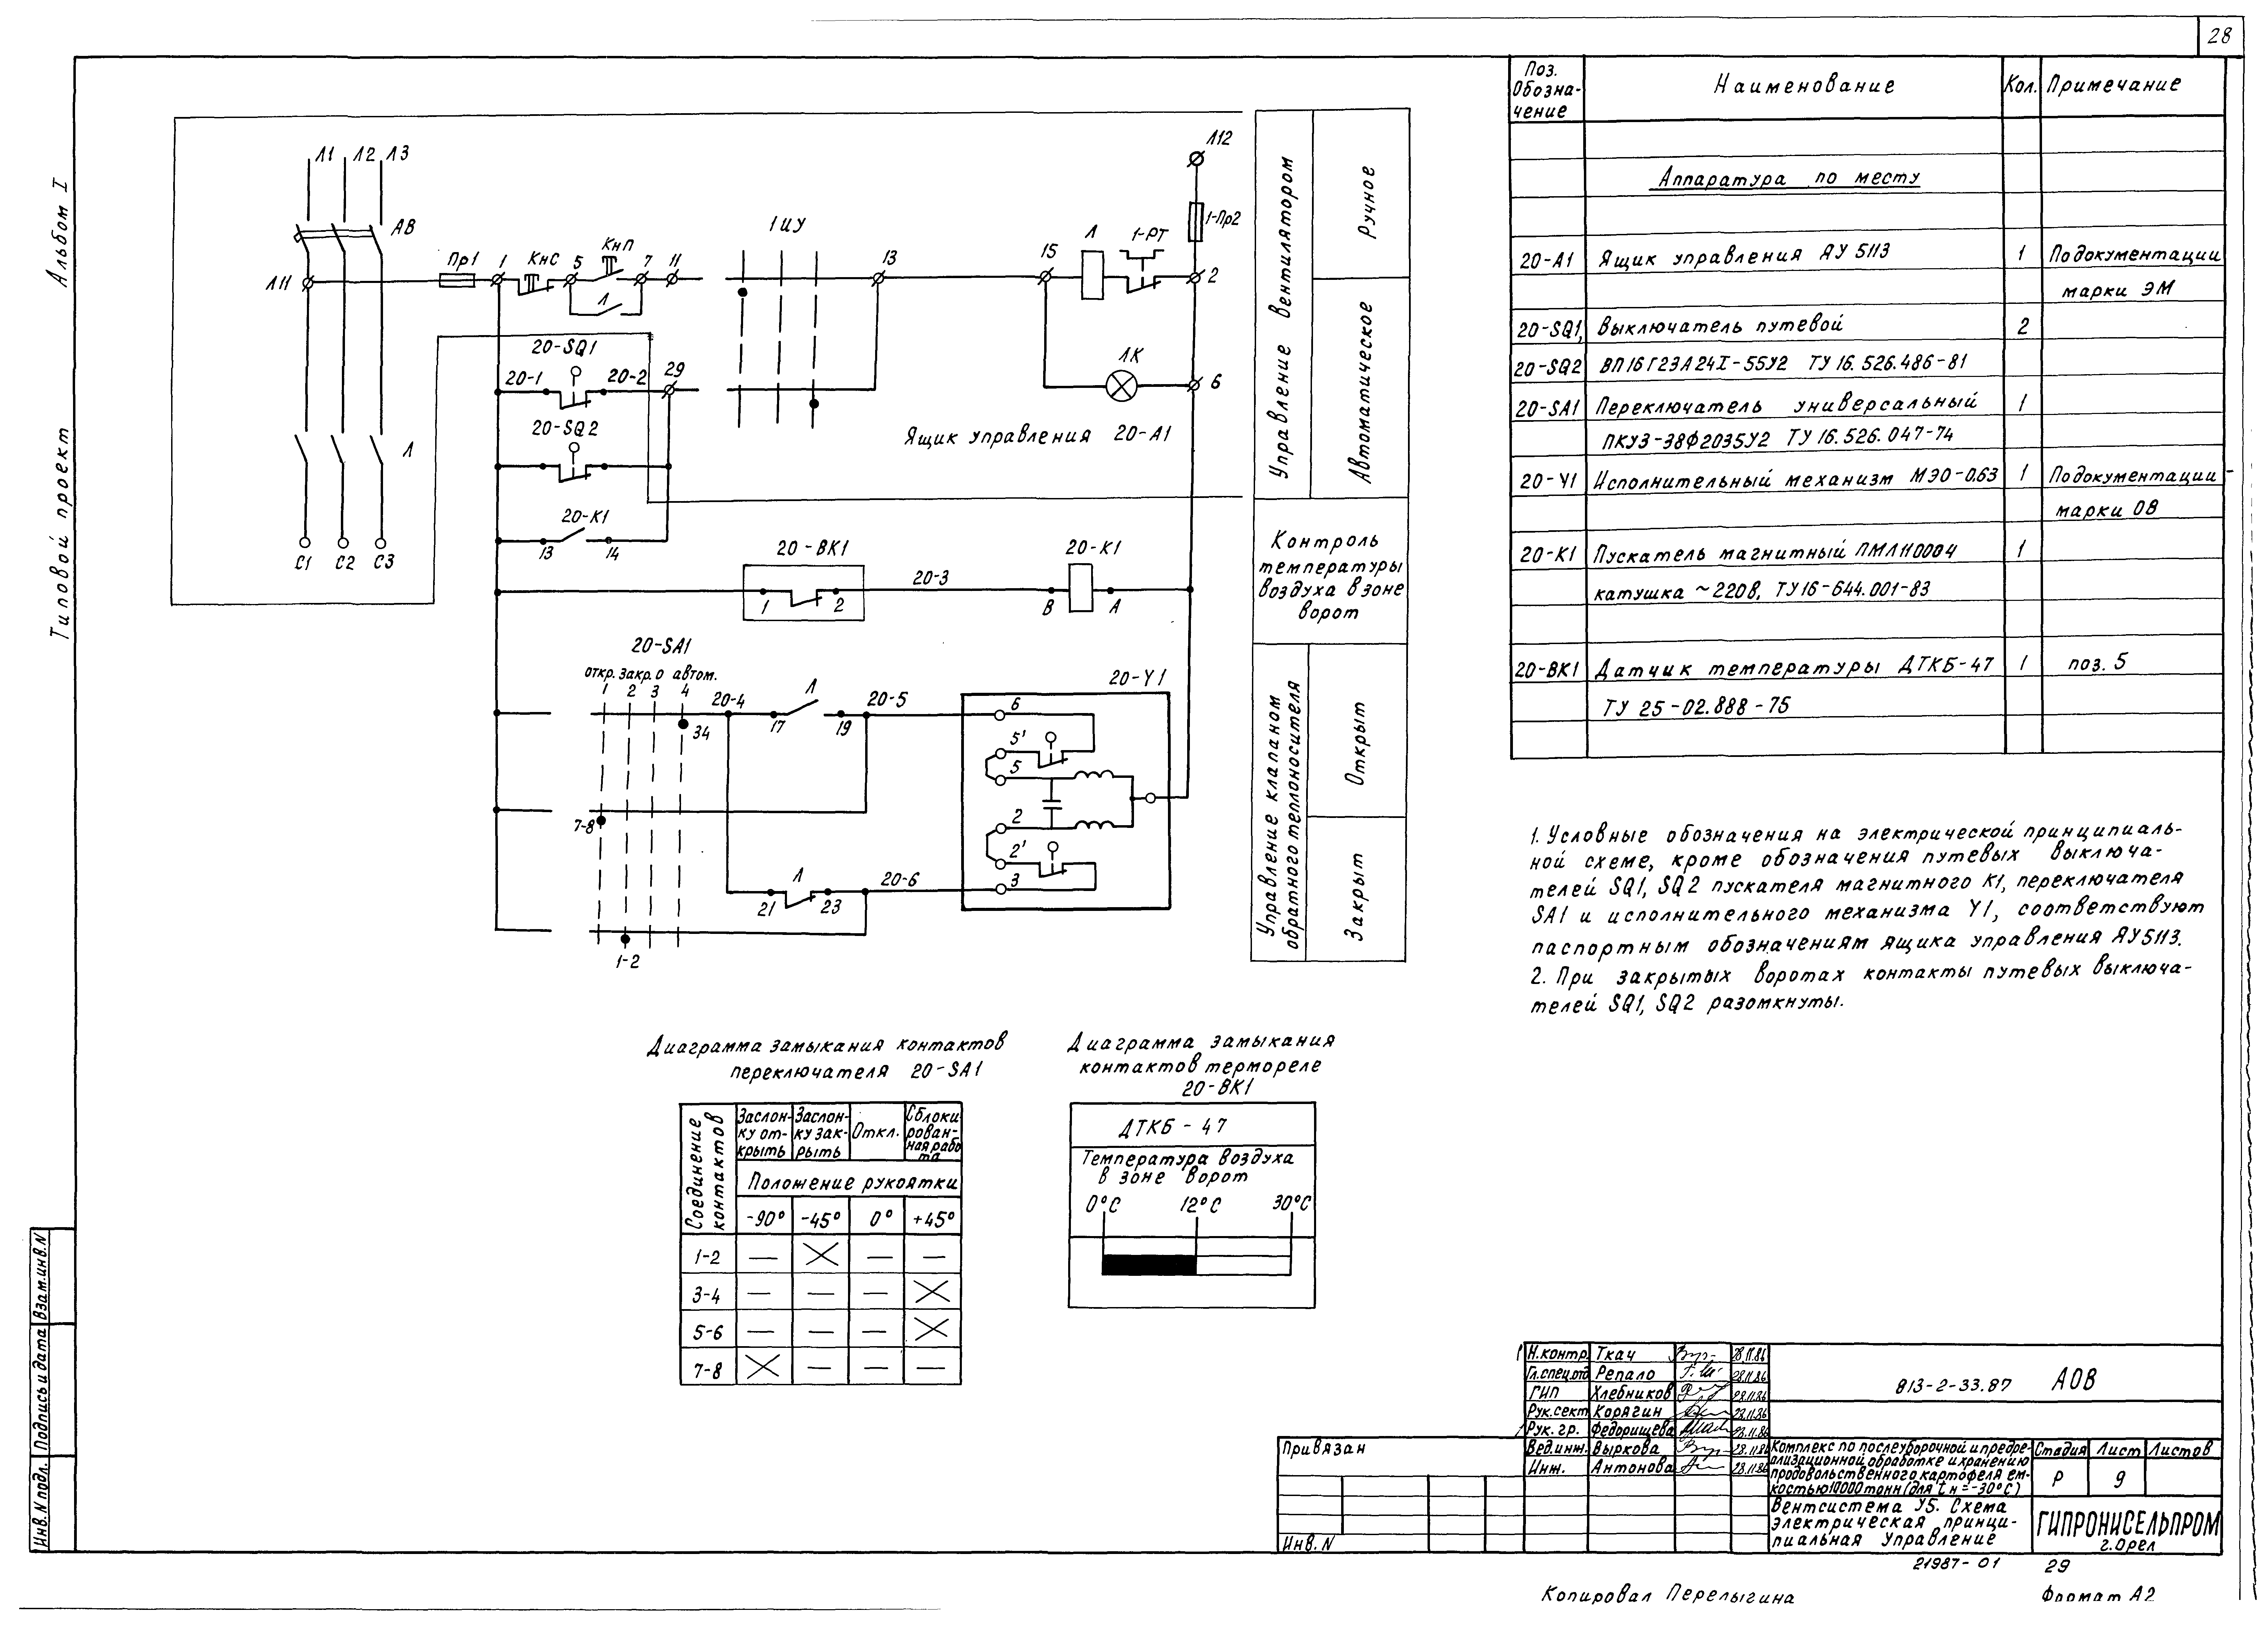 28
Альбом I
Типовой проект
Л1 Л2 Л3
АВ
Л11
Пр1
1
КнС
5
КнП
7
11
Л
1ИУ
13
15
Л
1-РТ
Л12
1-Пр2
2
ЛК
6
20-SQ1
20-1
20-2
29
20-SQ2
Ящик управления 20-А1
Л
С1 С2 С3
20-К1
13 14
20-ВК1
1 2
20-3
20-К1
В А
20-SA1
откр. закр. О автом.
1 2 3 4
34
20-4
Л
17 19
20-5
20-Y1
6
5'
5
2
2'
3
7-8
Л
21 23
20-6
1-2
Управление вентилятором
Ручное
Автоматическое
Контроль
температуры
воздуха в зоне
ворот
Управление клапаном
обратного теплоносителя
Открыт
Закрыт
Поз.
Обозна-
чение
Наименование
Кол.
Примечание
Аппаратура по месту
20-А1 Ящик управления ЯУ 5113 1 По документации
марки ЭМ
20-SQ1, Выключатель путевой 2
20-SQ2 ВП16Г23А24I-55У2 ТУ 16.526.486-81
20-SA1 Переключатель универсальный 1
ПКУ3-38Ф2035У2 ТУ 16.526.047-74
20-Y1 Исполнительный механизм МЭО-0,63 1 По документации
марки ОВ
20-К1 Пускатель магнитный ПМЛ110004 1
катушка ~220В, ТУ16-644.001-83
20-ВК1 Датчик температуры ДТКБ-47 1 поз. 5
ТУ 25-02.888-75
1. Условные обозначения на электрической принципиаль-
ной схеме, кроме обозначения путевых выключа-
телей SQ1, SQ2 пускателя магнитного К1, переключателя
SA1 и исполнительного механизма Y1, соответствуют
паспортным обозначениям ящика управления ЯУ5113.
2. При закрытых воротах контакты путевых выключа-
телей SQ1, SQ2 разомкнуты.
Диаграмма замыкания контактов
переключателя 20-SA1
Соединение
контактов
Заслон-
ку от-
крыть
Заслон-
ку зак-
рыть
Откл.
Сблоки
рован-
ная рабо
та
Положение рукоятки
-90° -45° 0° +45°
1-2 — X — —
3-4 — — — X
5-6 — — — X
7-8 X — — —
Диаграмма замыкания
контактов термореле
20-ВК1
ДТКБ-47
Температура воздуха
в зоне ворот
0°С 12°С 30°С
Взам.инв.N
Подпись и дата
Инв.N подл.
Н.контр. Ткач 28.11.86
Гл.спец.отд Репало 28.11.86
ГИП Хлебников 28.11.86
Рук.сект Корягин 28.11.86
Рук. гр. Федорищева 28.11.86
Вед.инж. Выркова 28.11.86
Инж. Антонова 28.11.86
Привязан
Инв. N
813-2-33.87 АОВ
Комплекс по послеуборочной и предре-
ализационной обработке и хранению
продовольственного картофеля ем-
костью 10000 тонн (для tн = -30°С)
Стадия Лист Листов
Р 9
Вентсистема У5. Схема
электрическая принци-
пиальная Управление
ГИПРОНИСЕЛЬПРОМ
г. Орел
21987-01 29
Копировал Перелыгина
Формат А2